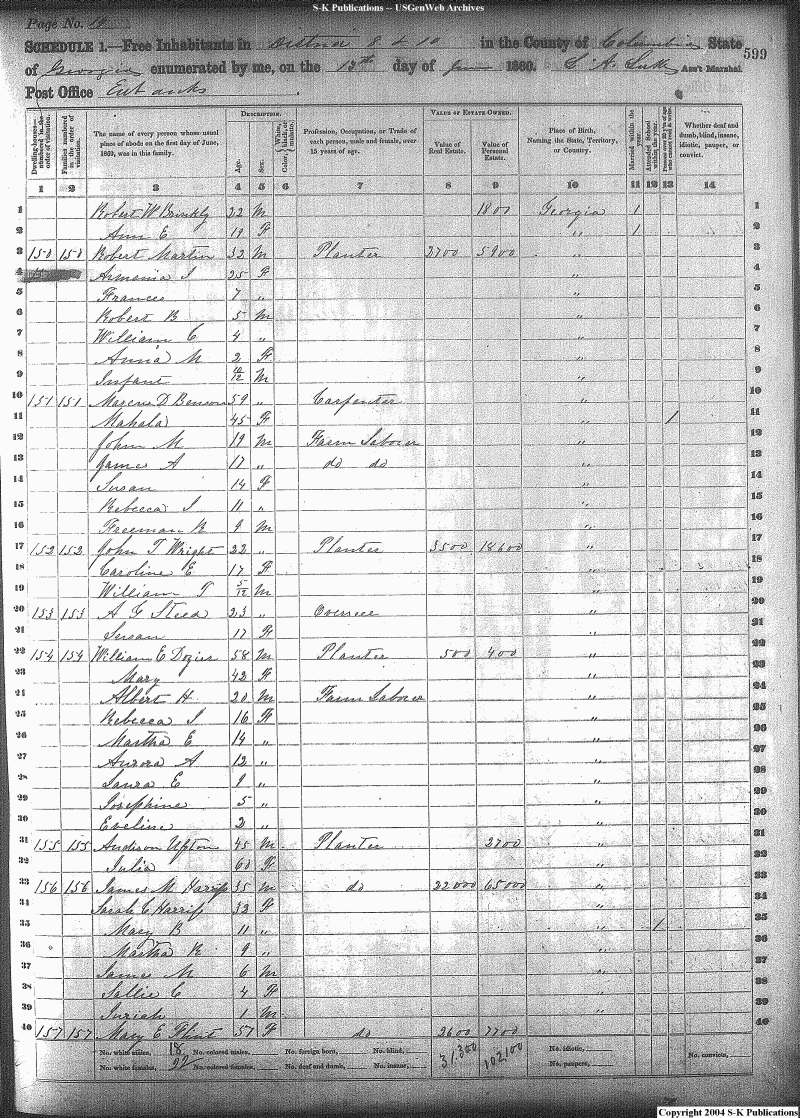 S-K Publications -- USGenWeb Archives
Page No. 19
SCHEDULE 1.—Free Inhabitants in District 8 & 10 in the County of Columbia State
of Georgia enumerated by me, on the 13th day of June 1860. S. A. Ass't Marshal. 599
Post Office Eubanks
DESCRIPTION. VALUE OF ESTATE OWNED.
Dwelling-houses—numbered in the order of visitation. Families numbered in the order of visitation. The name of every person whose usual place of abode on the first day of June, 1860, was in this family. Age. Sex. Color, White, black, or mulatto. Profession, Occupation, or Trade of each person, male and female, over 15 years of age. Value of Real Estate. Value of Personal Estate. Place of Birth, Naming the State, Territory, or Country. Married within the year. Attended School within the year. Persons over 20 y'rs of age who cannot read & write. Whether deaf and dumb, blind, insane, idiotic, pauper, or convict.
1 2 3 4 5 6 7 8 9 10 11 12 13 14
1 Robert W Brinkly 22 M 1800 Georgia 1 1
2 Ann E 19 F " 1 2
3 150 150 Robert Martin 32 M Planter 2700 5900 " 3
4 Armenia S 25 F " 4
5 Frances 7 " " 5
6 Robert B 5 M " 6
7 William C 4 " " 7
8 Anna M 2 F " 8
9 Infant M " 9
10 151 151 Marcus D Benson 59 " Carpenter " 10
11 Mahala 45 F " 1 11
12 John M 19 M Farm Laborer " 12
13 James A 17 " do do " 13
14 Susan 14 F " 14
15 Rebecca S 11 " " 15
16 Freeman R 9 M " 16
17 152 152 John T Wright 22 " Planter 3500 18600 " 17
18 Caroline E 17 F " 18
19 William T 5/12 M " 19
20 153 153 A G Steed 23 " Overseer " 20
21 Susan 17 F " 21
22 154 154 William E Dozier 58 M Planter 500 400 " 22
23 Mary 42 F " 23
24 Albert H 20 M Farm Laborer " 24
25 Rebecca S 16 F " 25
26 Martha E 14 " " 26
27 Aurora A 12 " " 27
28 Laura E 9 " " 28
29 Josephine 5 " " 29
30 Eveline 2 " " 30
31 155 155 Anderson Upton 45 M Planter 2700 " 31
32 Julia 60 F " 32
33 156 156 James M Harriss 35 M do 22000 65000 " 33
34 Sarah C Harriss 32 F " 34
35 Mary B 11 " " 1 35
36 Martha R 9 " " 36
37 James M 6 M " 37
38 Sallie C 4 F " 38
39 1 M " 39
40 157 157 Mary E Flint 57 F do 2600 7700 40
No. white males, 18 No. colored males, No. foreign born, No. blind, 31.300 102100 No. idiotic, No. convicts,
No. white females, 22 No. colored females, No. deaf and dumb, No. insane, No. paupers,
Copyright 2004 S-K Publications